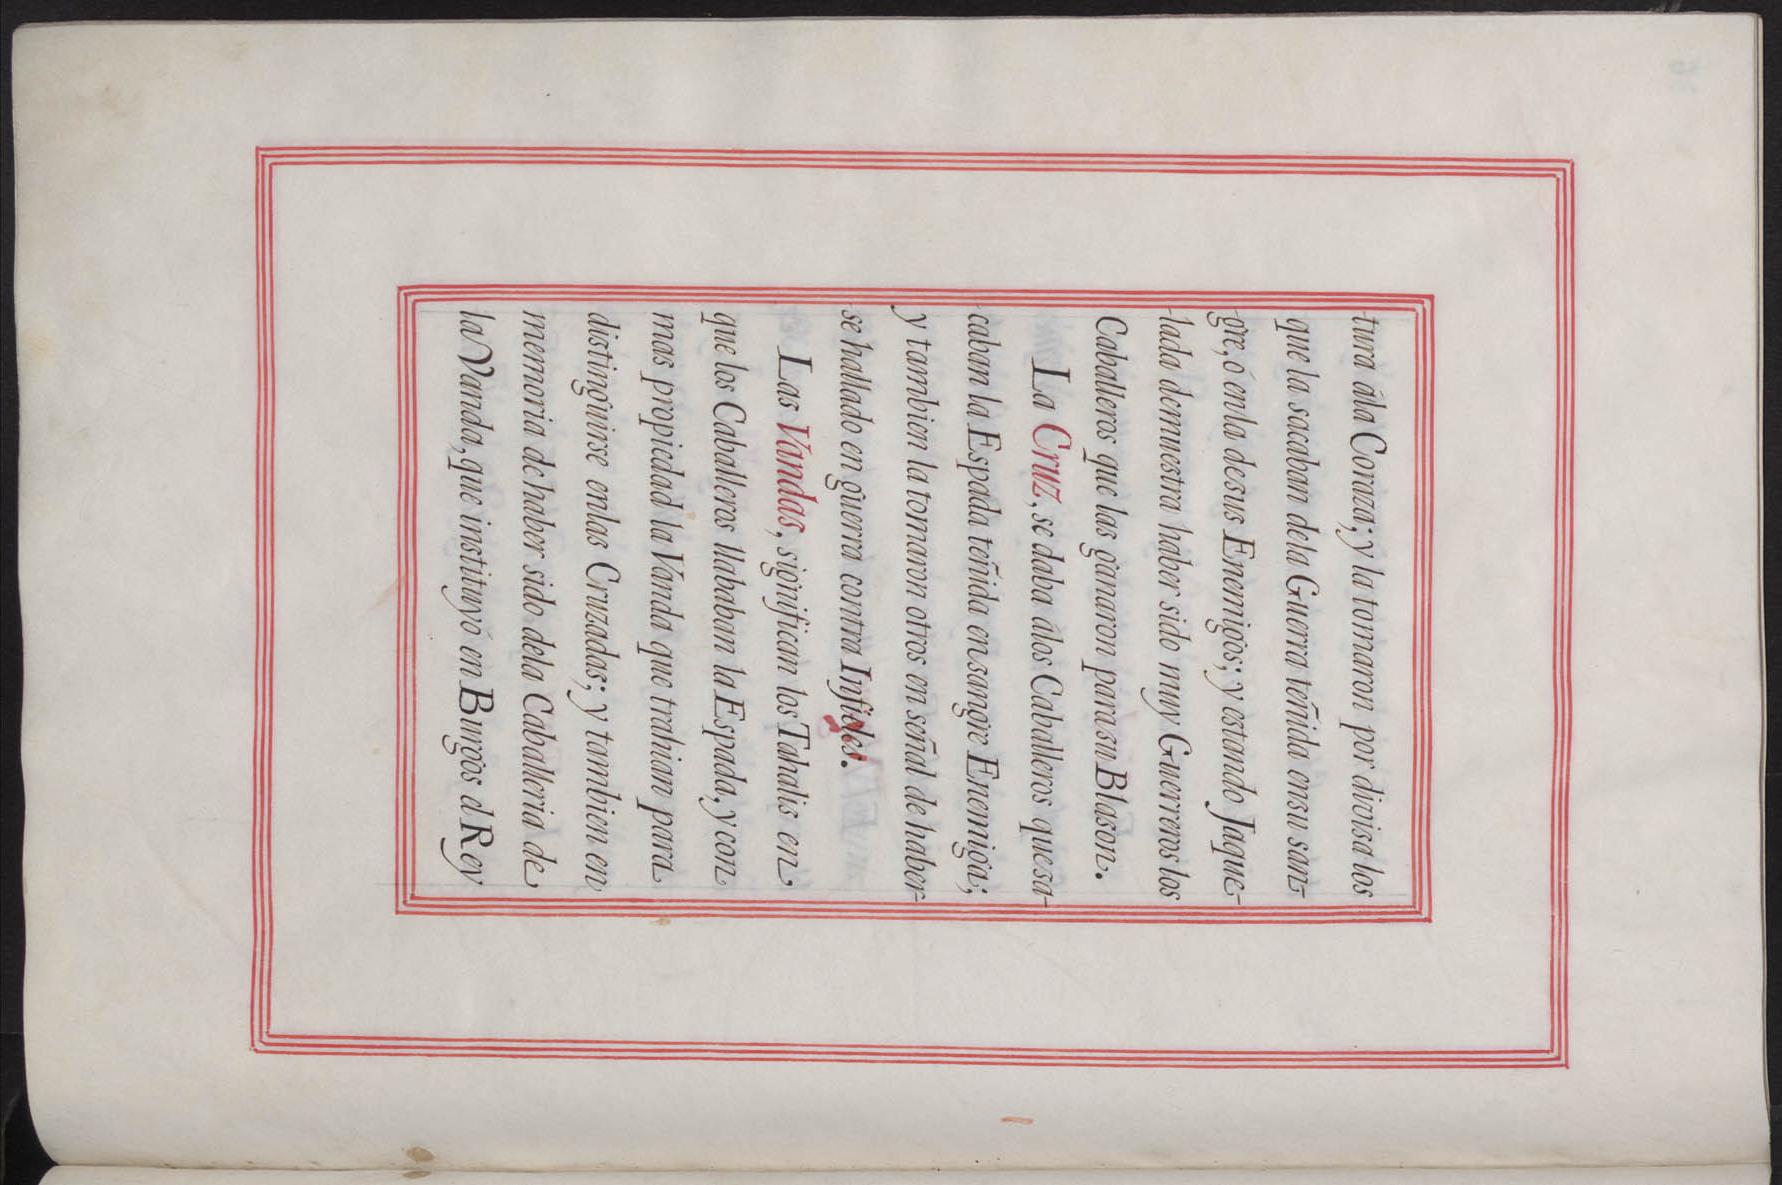 -tura ála Coraza; y la tomaron por divisa los
que la sacaban dela Guerra teñida ensu san-
gre, ó enla desus Enemigos; y estando Jaque-
lada demuestra haber sido muy Guerreros los
Caballeros que las ganaron para su Blason.
La Cruz, se daba álos Caballeros quesa-
-caban la Espada teñida ensangre Enemiga;
y tambien la tomaron otros enseñal de haber-
se hallado en guerra contra Infieles.
Las Vandas, significan los Tahalis en
que los Caballeros llababan la Espada, y con
mas propiedad la Vanda que trahian para
distinguirse enlas Cruzadas; y tambien en
memoria de haber sido dela Caballeria de
la Vanda, que instituyó en Burgos el Rey